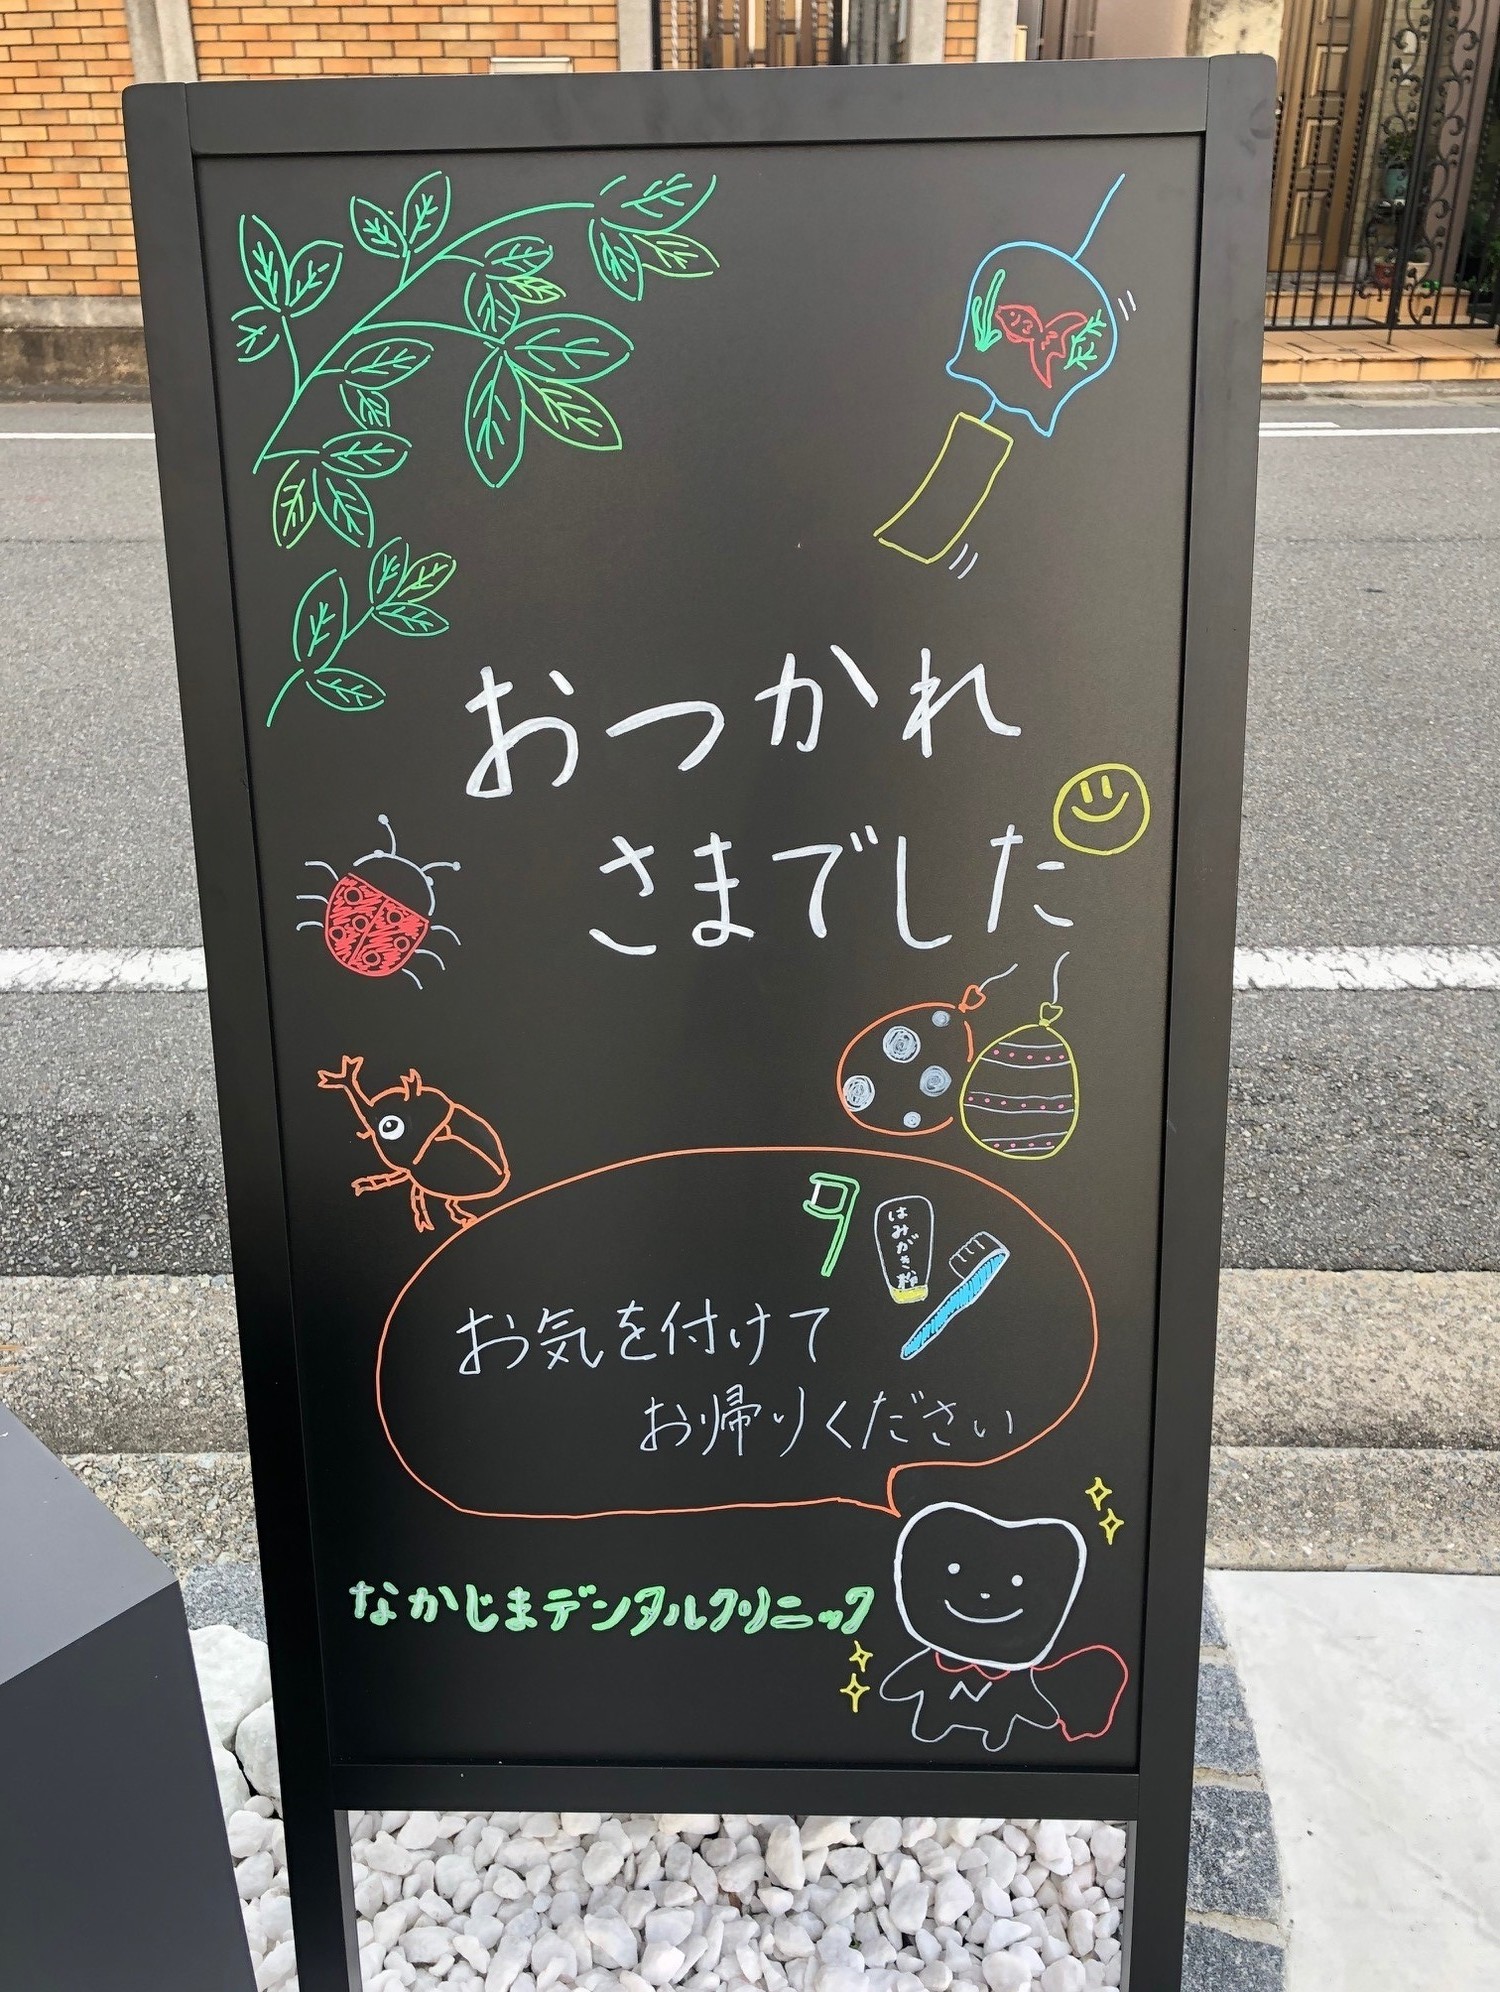 おつかれ
さまでした
はみがき粉
お気を付けて
お帰りください
なかじまデンタルクリニック
N